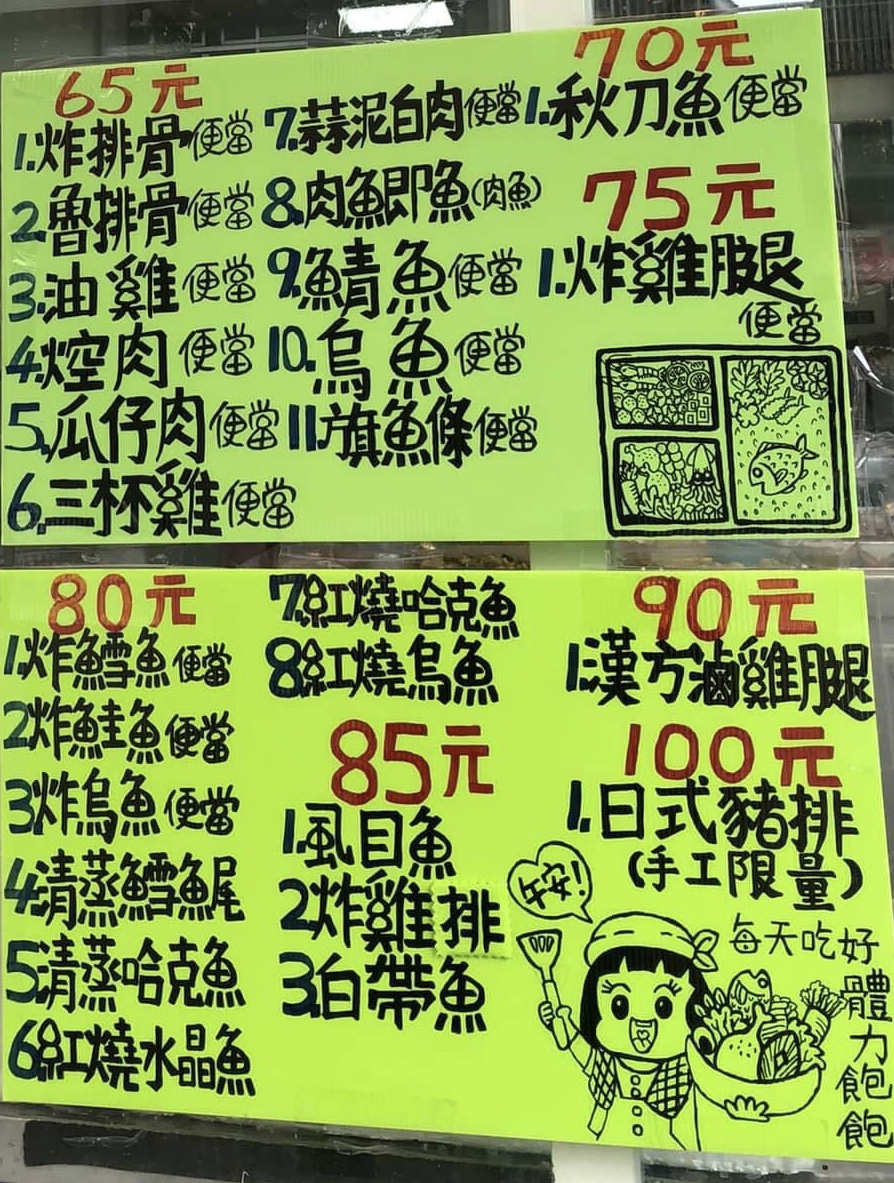 65元
1.炸排骨便當
2.魯排骨便當
3.油雞便當
4.焢肉便當
5.瓜仔肉便當
6.三杯雞便當
7.蒜泥白肉便當
8.肉鯽魚(肉魚)
9.鯖魚便當
10.烏魚便當
11.旗魚條便當
70元
1.秋刀魚便當
75元
1.炸雞腿
便當
80元
1.炸鱈魚便當
2.炸鮭魚便當
3.炸烏魚便當
4.清蒸鱈魚尾
5.清蒸哈克魚
6.紅燒水晶魚
7.紅燒哈克魚
8.紅燒烏魚
85元
1.虱目魚
2.炸雞排
3.白帶魚
90元
1.漢方滷雞腿
100元
1.日式豬排
(手工限量)
午安!
每天吃好
體力飽飽